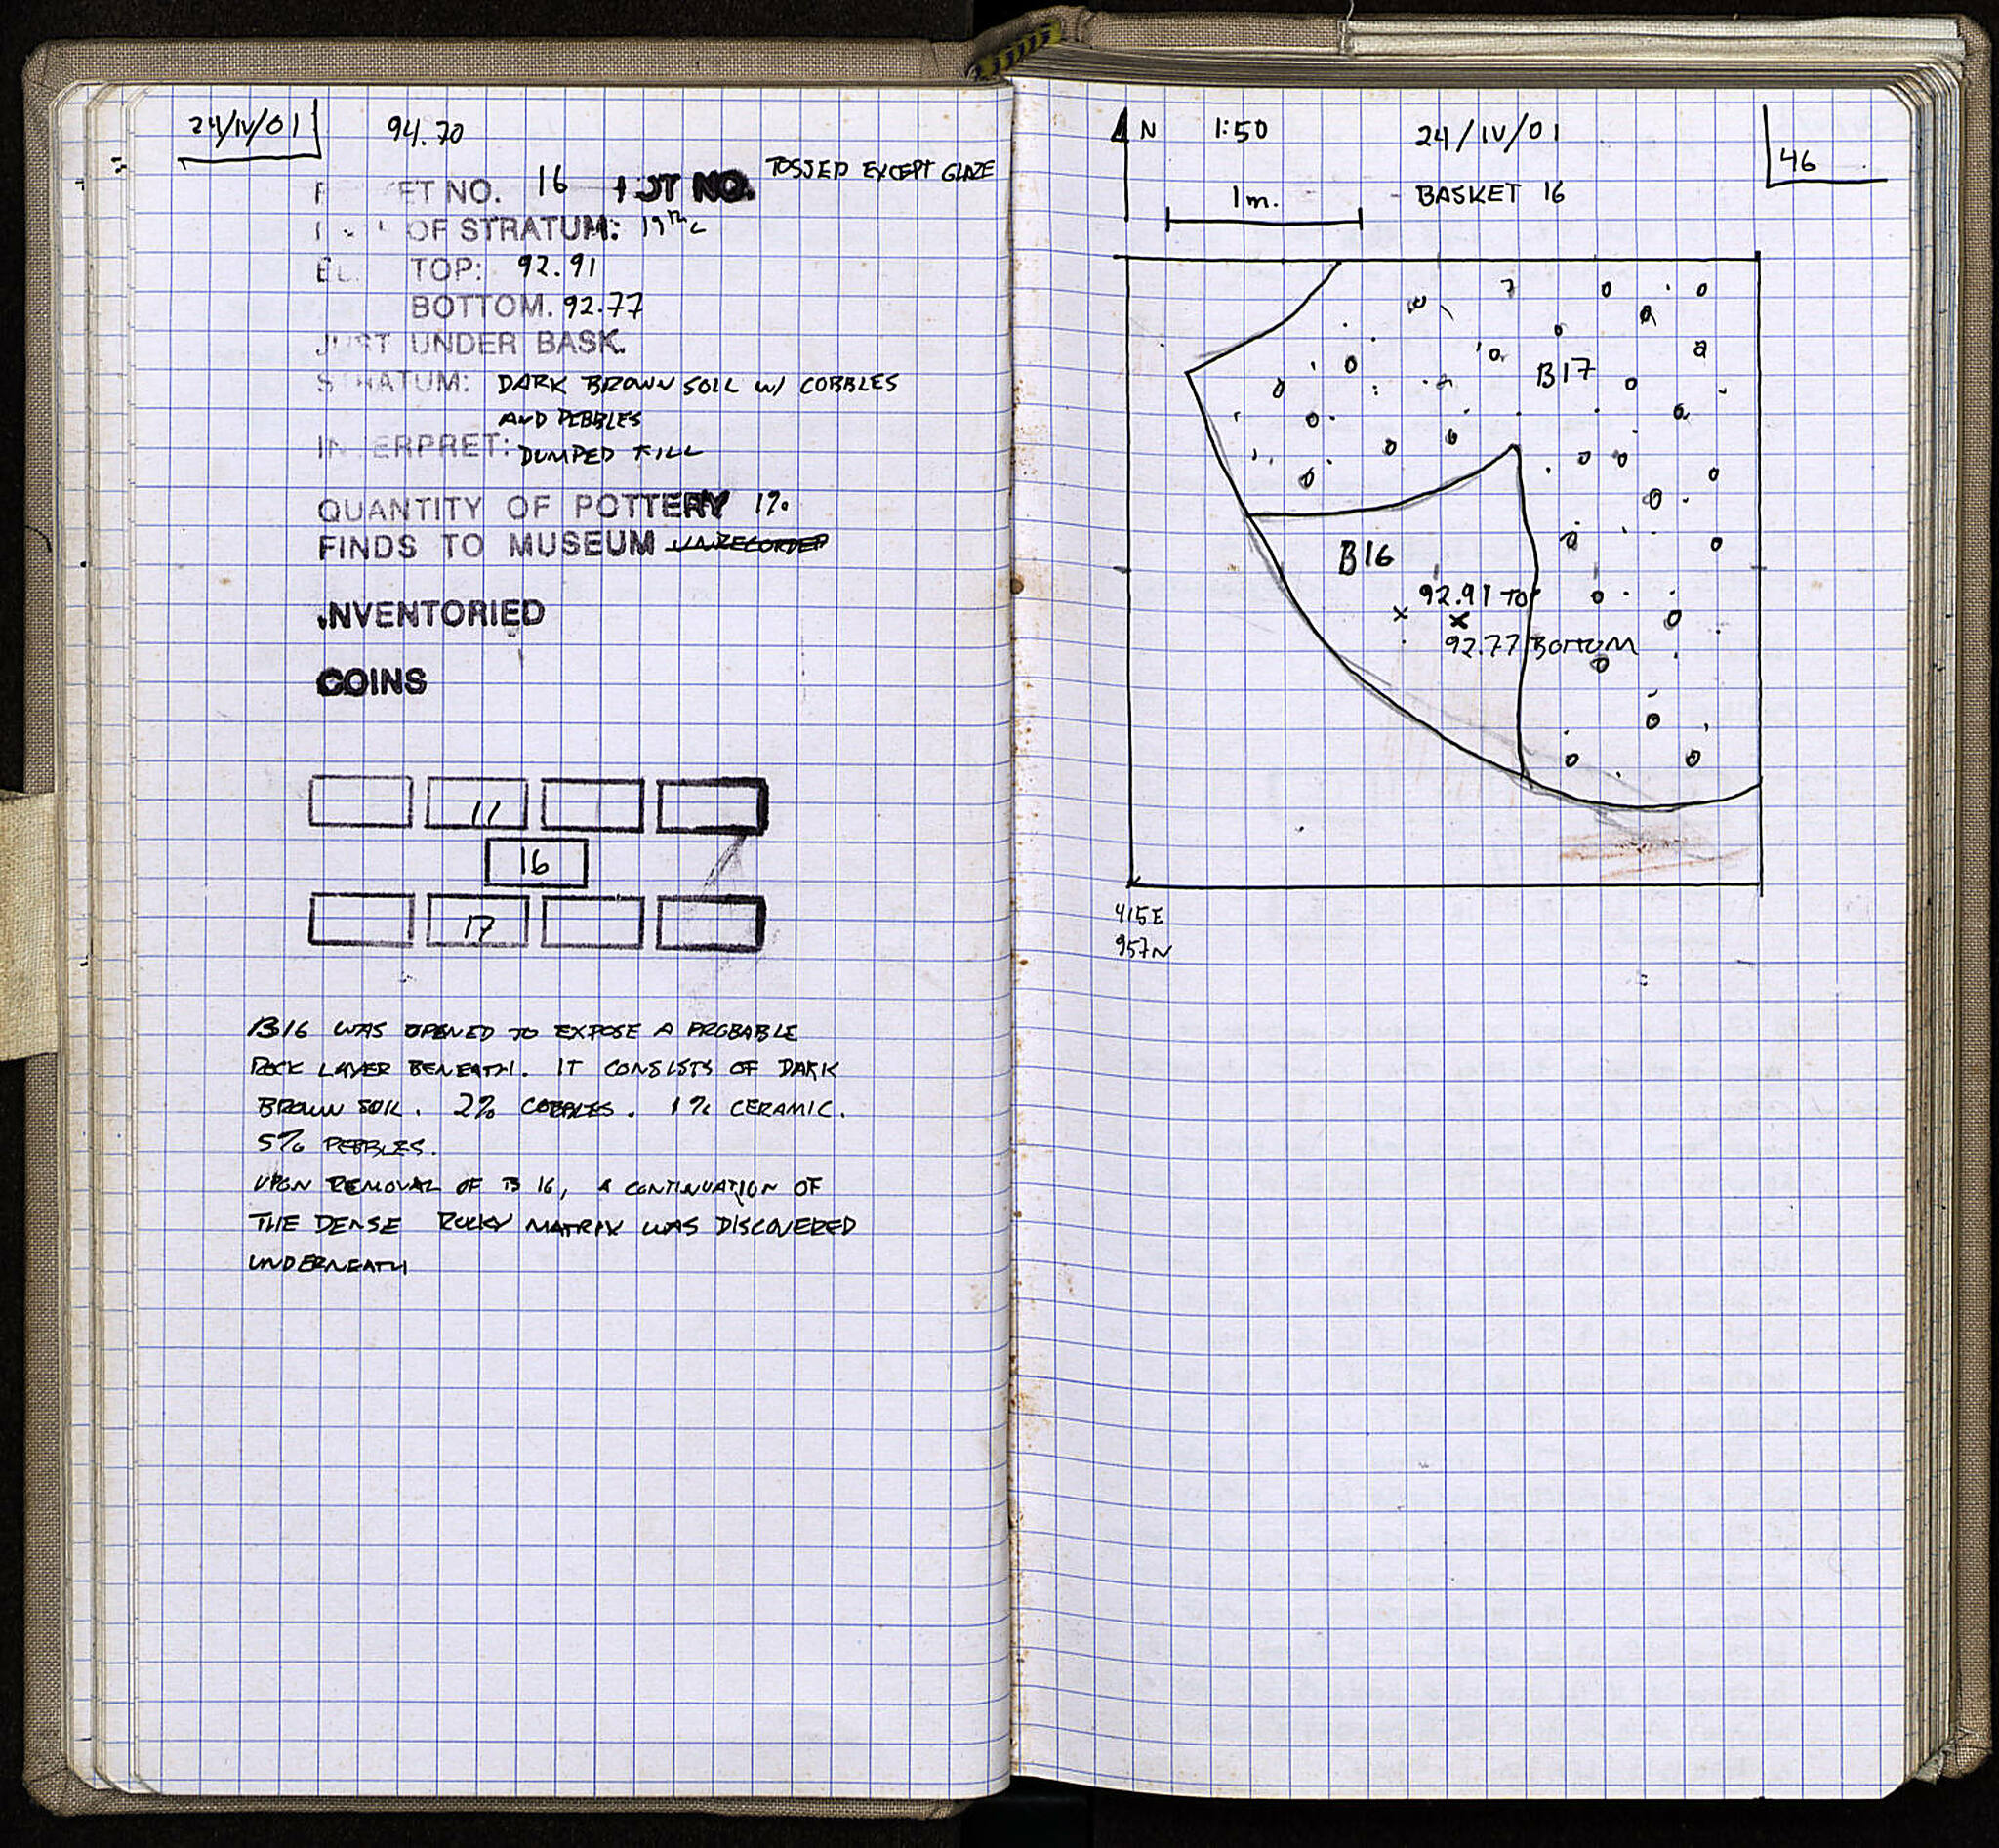 24/IV/01 94.70
ET NO. 16 NO. TOSSED EXCEPT GLAZE
OF STRATUM: 19th C
EL. TOP: 92.91
BOTTOM. 92.77
JUST UNDER BASK.
STRATUM: DARK BROWN SOIL W/ COBBLES
AND PEBBLES
INTERPRET: DUMPED FILL
QUANTITY OF POTTERY 1%
FINDS TO MUSEUM UNRECORDED
INVENTORIED
COINS
11
16
17
B16 WAS OPENED TO EXPOSE A PROBABLE
ROCK LAYER BENEATH. IT CONSISTS OF DARK
BROWN SOIL. 2% COBBLES. 1% CERAMIC.
5% PEBBLES.
UPON REMOVAL OF B 16, A CONTINUATION OF
THE DENSE ROCKY MATRIX WAS DISCOVERED
UNDERNEATH
N 1:50 24/IV/01
46
1m. BASKET 16
B17
B16
92.91 TOP
92.77 BOTTOM
415E
957N